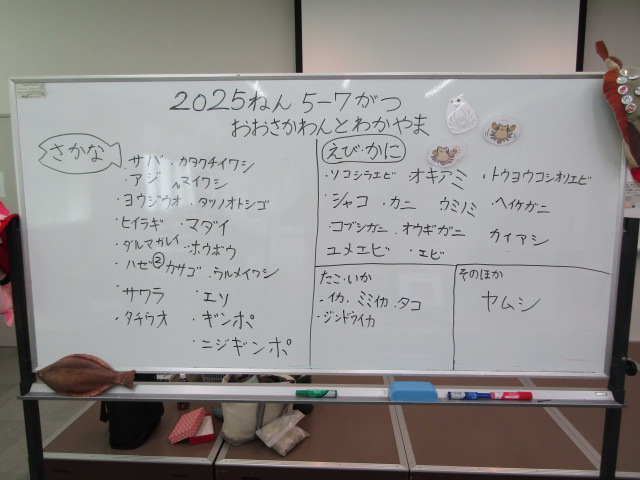 2025ねん 5-7がつ
おおさかわんとわかやま
さかな
・サバ ・カタクチイワシ
・アジ ・マイワシ
・ヨウジウオ ・タツノオトシゴ
・ヒイラギ ・マダイ
・ダルマガレイ ・ホウボウ
・ハゼ② ・カサゴ ・ウルメイワシ
・サワラ ・エソ
・タチウオ ・ギンポ
・ニジギンポ
えび・かに
・ソコシラエビ オキアミ ・トウヨウコシオリエビ
・シャコ ・カニ ウミノミ ・ヘイケガニ
・コブシガニ ・オウギガニ カイアシ
・ユメエビ ・エビ
たこ・いか
・イカ ・ミミイカ ・タコ
・ジンドウイカ
そのほか
ヤムシ